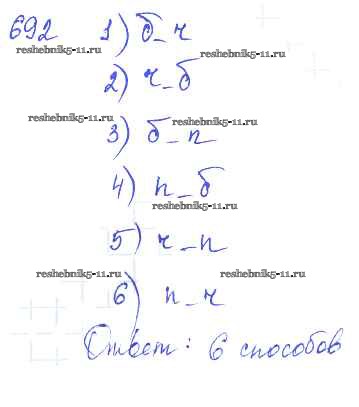 692 1) б – ч
reshebnik5-11.ru reshebnik5-11.ru
2) ч – б
reshebnik5-11.ru reshebnik5-11.ru
3) б – п
4) п – б
reshebnik5-11.ru
5) ч – п
reshebnik5-11.ru reshebnik5-11.ru
6) п – ч
Ответ: 6 способов